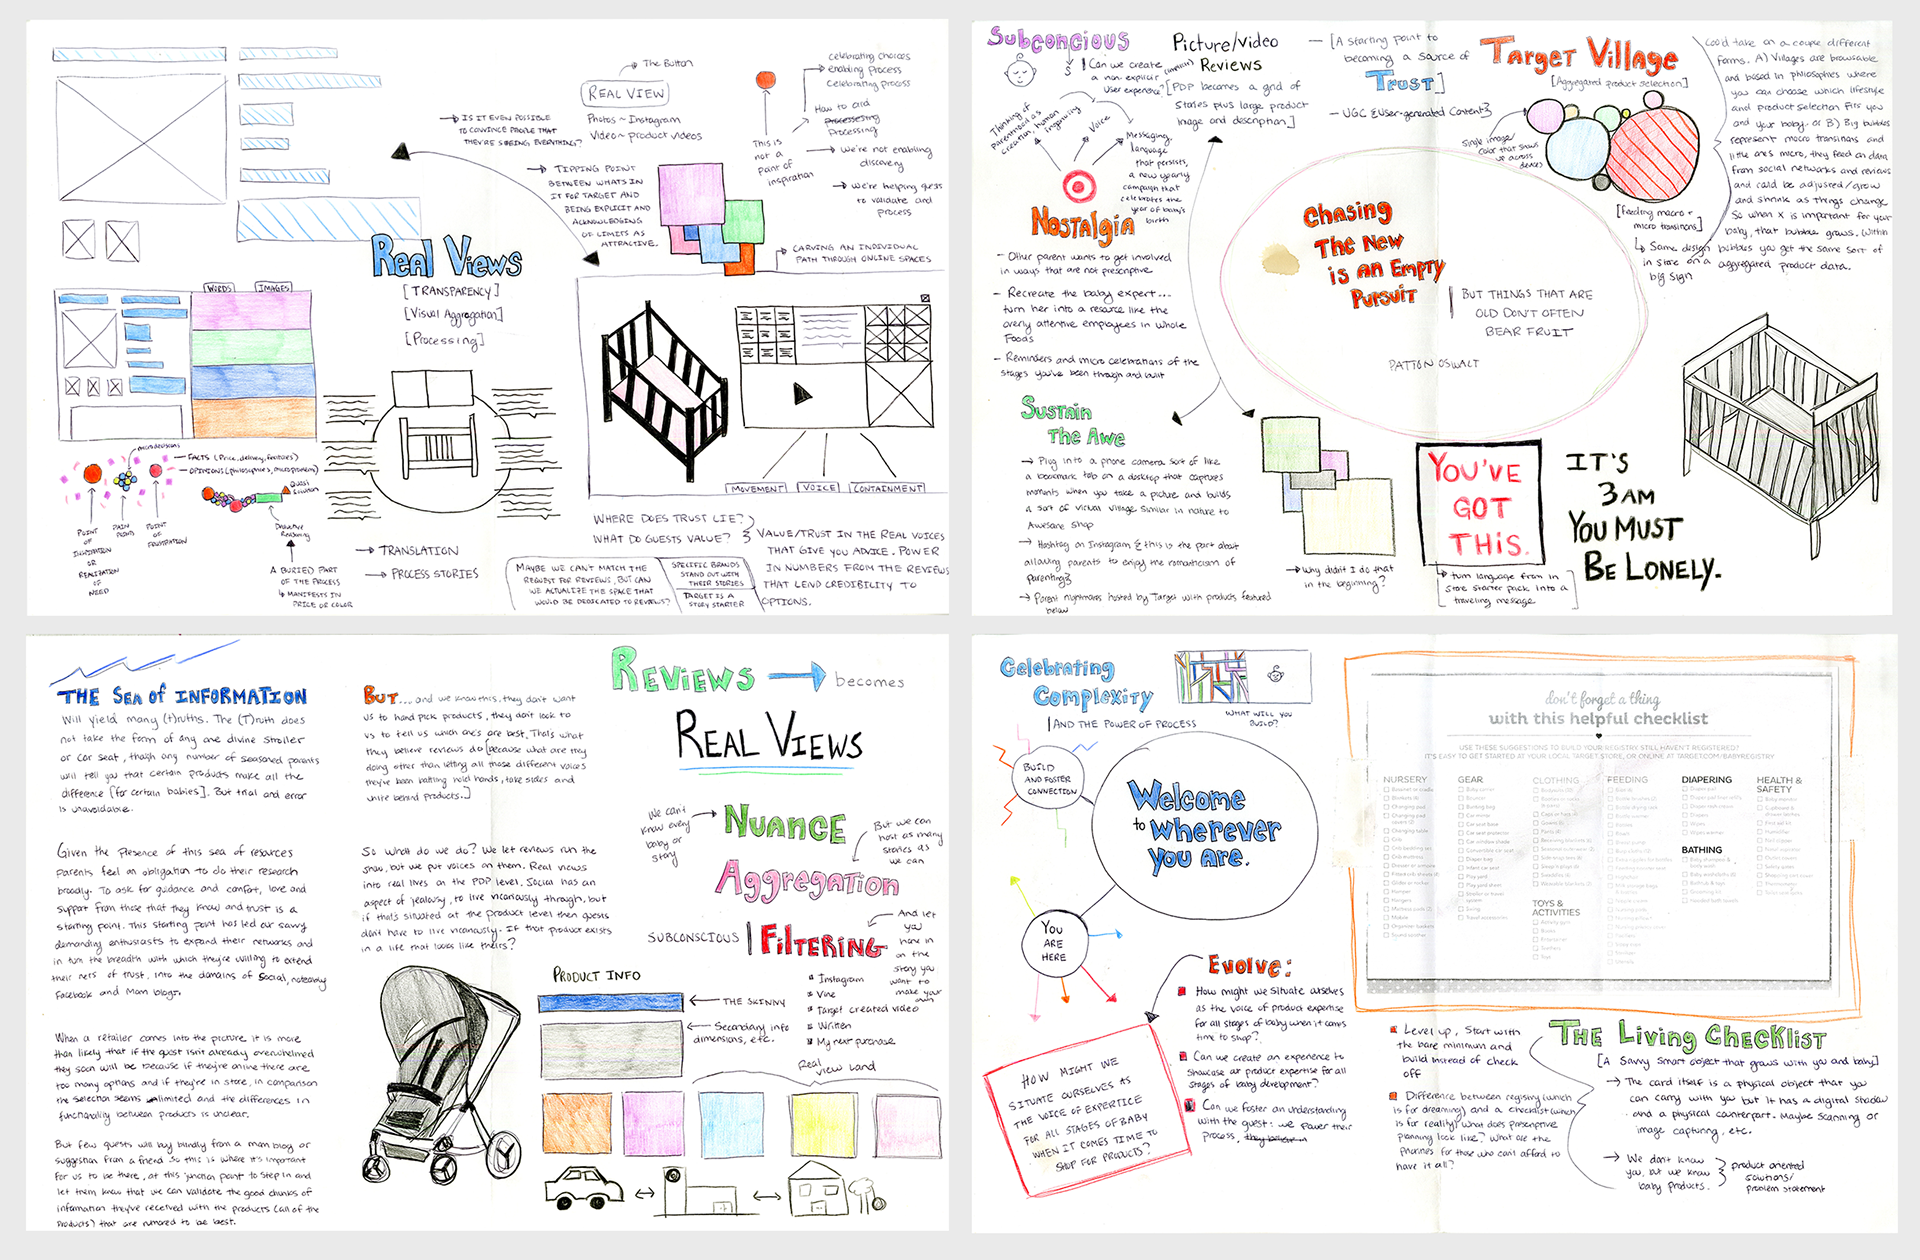 → The Button
REAL VIEW
Photos ~ Instagram
Video ~ product videos
→ IS IT EVEN POSSIBLE
TO CONVINCE PEOPLE THAT
THEY'RE SEEING EVERYTHING?
celebrating choices
enabling Process
Celebrating process
How to and
Processing
This is
not a
Point of
inspiration
→ We're not enabling
discovery
→ We're helping guests
to validate and
process
→ TIPPING POINT
BETWEEN WHATS IN
IT FOR TARGET AND
BEING EXPLICIT AND
ACKNOWLEDGING
OF LIMITS AS
ATTRACTIVE.
→ CARVING AN INDIVIDUAL
PATH THROUGH ONLINE SPACES
Real Views
[TRANSPARENCY]
[Visual Aggregation]
[Processing]
WORDS IMAGES
microdecisions
→ FACTS (Price, delivery, features)
→ OPINIONS (philosophies, microproblems)
POINT
OF
INSPIRATION
OR
REALIZATION
OF
NEED
PAIN
POINTS
POINT
OF
FRUSTRATION
Deductive
Reasoning
A BURIED PART
OF THE PROCESS
↳ MANIFESTS IN
PRICE OR COLOR
→ TRANSLATION
→ PROCESS STORIES
MOVEMENT VOICE CONTAINMENT
WHERE DOES TRUST LIE?
WHAT DO GUESTS VALUE?
VALUE/TRUST IN THE REAL VOICES
THAT GIVE YOU ADVICE. POWER
IN NUMBERS FROM THE REVIEWS
THAT LEND CREDIBILITY TO
OPTIONS.
MAYBE WE CAN'T MATCH THE
REQUEST FOR REVIEWS, BUT CAN
WE ACTUALIZE THE SPACE THAT
WOULD BE DEDICATED TO REVIEWS?
SPECIFIC BRANDS
STAND OUT WITH
THEIR STORIES
TARGET IS A
STORY STARTER
Subconcious
Can we create
a non-explicit (implicit)
User experience?
Thinking of
parenthood as
creation, human
ingenuity
Voice
Messaging,
language
that persists,
a new yearly
campaign that
celebrates the
year of baby's
birth
Picture/Video
Reviews
[PDP becomes a grid of
Stories plus large product
Image and description]
— [A starting point to
becoming a source of
Trust]
— UGC {User-generated Content}
Target Village
[Aggregated product selection]
Single image/
color that shows
up across
devices
[Feeding macro +
micro transitions]
↳ Same design bubbles, you get the same sort of
in store on a aggregated product data.
big sign
Could take on a couple different
forms. A) Villages are browsable
and based in philosophies where
you can choose which lifestyle
and product selection fits you
and your baby. or B) Big bubbles
represent macro transitions and
little ones micro, they feed on data
from social networks and reviews
and could be adjusted/grow
and shrink as things change
So when X is important for your
baby, that bubble grows. (Within
Nostalgia
- Other parent wants to get involved
in ways that are not prescriptive
- Recreate the baby expert...
turn her into a resource like the
overly attentive employees in Whole
Foods
- Reminders and micro celebrations of the
stages you've been through and built
Chasing
The New
is An Empty
Pursuit
BUT THINGS THAT ARE
OLD DON'T OFTEN
BEAR FRUIT
PATTON OSWALT
Sustain
The Awe
→ Plug into a phone camera sort of like
a bookmark tab on a desktop that captures
moments when you take a picture and builds
a sort of virtual village similar in nature to
Awesome Shop
→ Hashtag on Instagram { this is the part about
allowing parents to enjoy the romanticism of
parenting}
→ Parent nightmares hosted by Target with products featured
below
Why didn't I do that
in the beginning?
YOU'VE
GOT
THIS.
↳ turn language from in
store starter pack into a
traveling message
IT'S
3 AM
YOU MUST
BE LONELY.
THE Sea of INFORMATION
Will yield many (t)ruths. The (T)ruth does
not take the form of any one divine stroller
or car seat, though any number of seasoned parents
will tell you that certain products make all the
difference [for certain babies]. But trial and error
is unavoidable.
Given the presence of this sea of resources
parents feel an obligation to do their research
broadly. To ask for guidance and comfort, love and
support from those that they know and trust is a
starting point. This starting point has led our savvy
demanding enthusiasts to expand their networks and
in turn the breadth with which they're willing to extend
their nets of trust, into the domains of Social, noteably
Facebook and Mom blogs.
When a retailer comes into the picture it is more
than likely that if the guest isn't already overwhelmed
they soon will be because if they're online there are
too many options and if they're in store, in comparison
the selection seems limited and the differences in
functionality between products is unclear.
But few guests will buy blindly from a mom blog or
suggestion from a friend so this is where it's important
for us to be there, at this junction point to step in and
let them know that we can validate the good chunks of
information they've received with the products (all of the
Products) that are rumored to be best.
BUT... and we know this, they don't want
us to hand pick products, they don't look to
us to tell us which one's are best. That's what
they believe reviews do [because what are they
doing other than letting all those different voices
they've been battling hold hands, take sides and
unite behind products.]
So what do we do? We let reviews run the
show, but we put voices on them. Real views
into real lives on the PDP level. Social has an
aspect of jealousy, to live vicariously through, but
if that's situated at the product level then guests
don't have to live vicariously. If that product exists
in a life that looks like theirs?
Reviews → becomes
REAL VIEWS
We can't
know every
baby or
story
NUANCE
But we can
host as many
stories as
we can
Aggregation
SUBCONSCIOUS | FILTERING
And let
you
hone in
on the
story you
want to
make your
own
PRODUCT INFO
← THE SKINNY
← Secondary info
dimensions, etc.
Instagram
Vine
Target created video
Written
My next purchase
Real
view Land
Celebrating
Complexity
AND THE POWER OF PROCESS
WHAT WILL YOU
BUILD?
BUILD
AND FOSTER
CONNECTION
Welcome
to wherever
you are.
YOU
ARE
HERE
Evolve:
How might we situate ourselves
as the voice of product expertise
for all stages of baby when it comes
time to shop?
Can we create an experience to
showcase our product expertise for all
stages of baby development?
Can we foster an understanding
with the guest: we power their
process,
HOW MIGHT WE
SITUATE OURSELVES AS
THE VOICE OF EXPERTICE
FOR ALL STAGES OF BABY
WHEN IT COMES TIME TO
SHOP FOR PRODUCTS?
don't forget a thing
with this helpful checklist
USE THESE SUGGESTIONS TO BUILD YOUR REGISTRY STILL HAVEN'T REGISTERED?
IT'S EASY TO GET STARTED AT YOUR LOCAL TARGET STORE, OR ONLINE AT TARGET.COM/BABYREGISTRY
NURSERY
GEAR
CLOTHING
FEEDING
DIAPERING
HEALTH &
SAFETY
BATHING
TOYS &
ACTIVITIES
Level up, Start with
the bare minimum and
build instead of check
off
Difference between registry (which
is for dreaming) and a checklist (which
is for reality) what does prescriptive
planning look like? What are the
priorities for those who can't afford to
have it all?
THE Living Checklist
[A Savvy Smart object that grows with you and baby]
→ The card itself is a physical object that you
can carry with you but it has a digital shadow
and a physical counterpart. Maybe scanning or
image capturing, etc.
→ We don't know
you, but we know
baby products.
product oriented
solutions/
problem statement